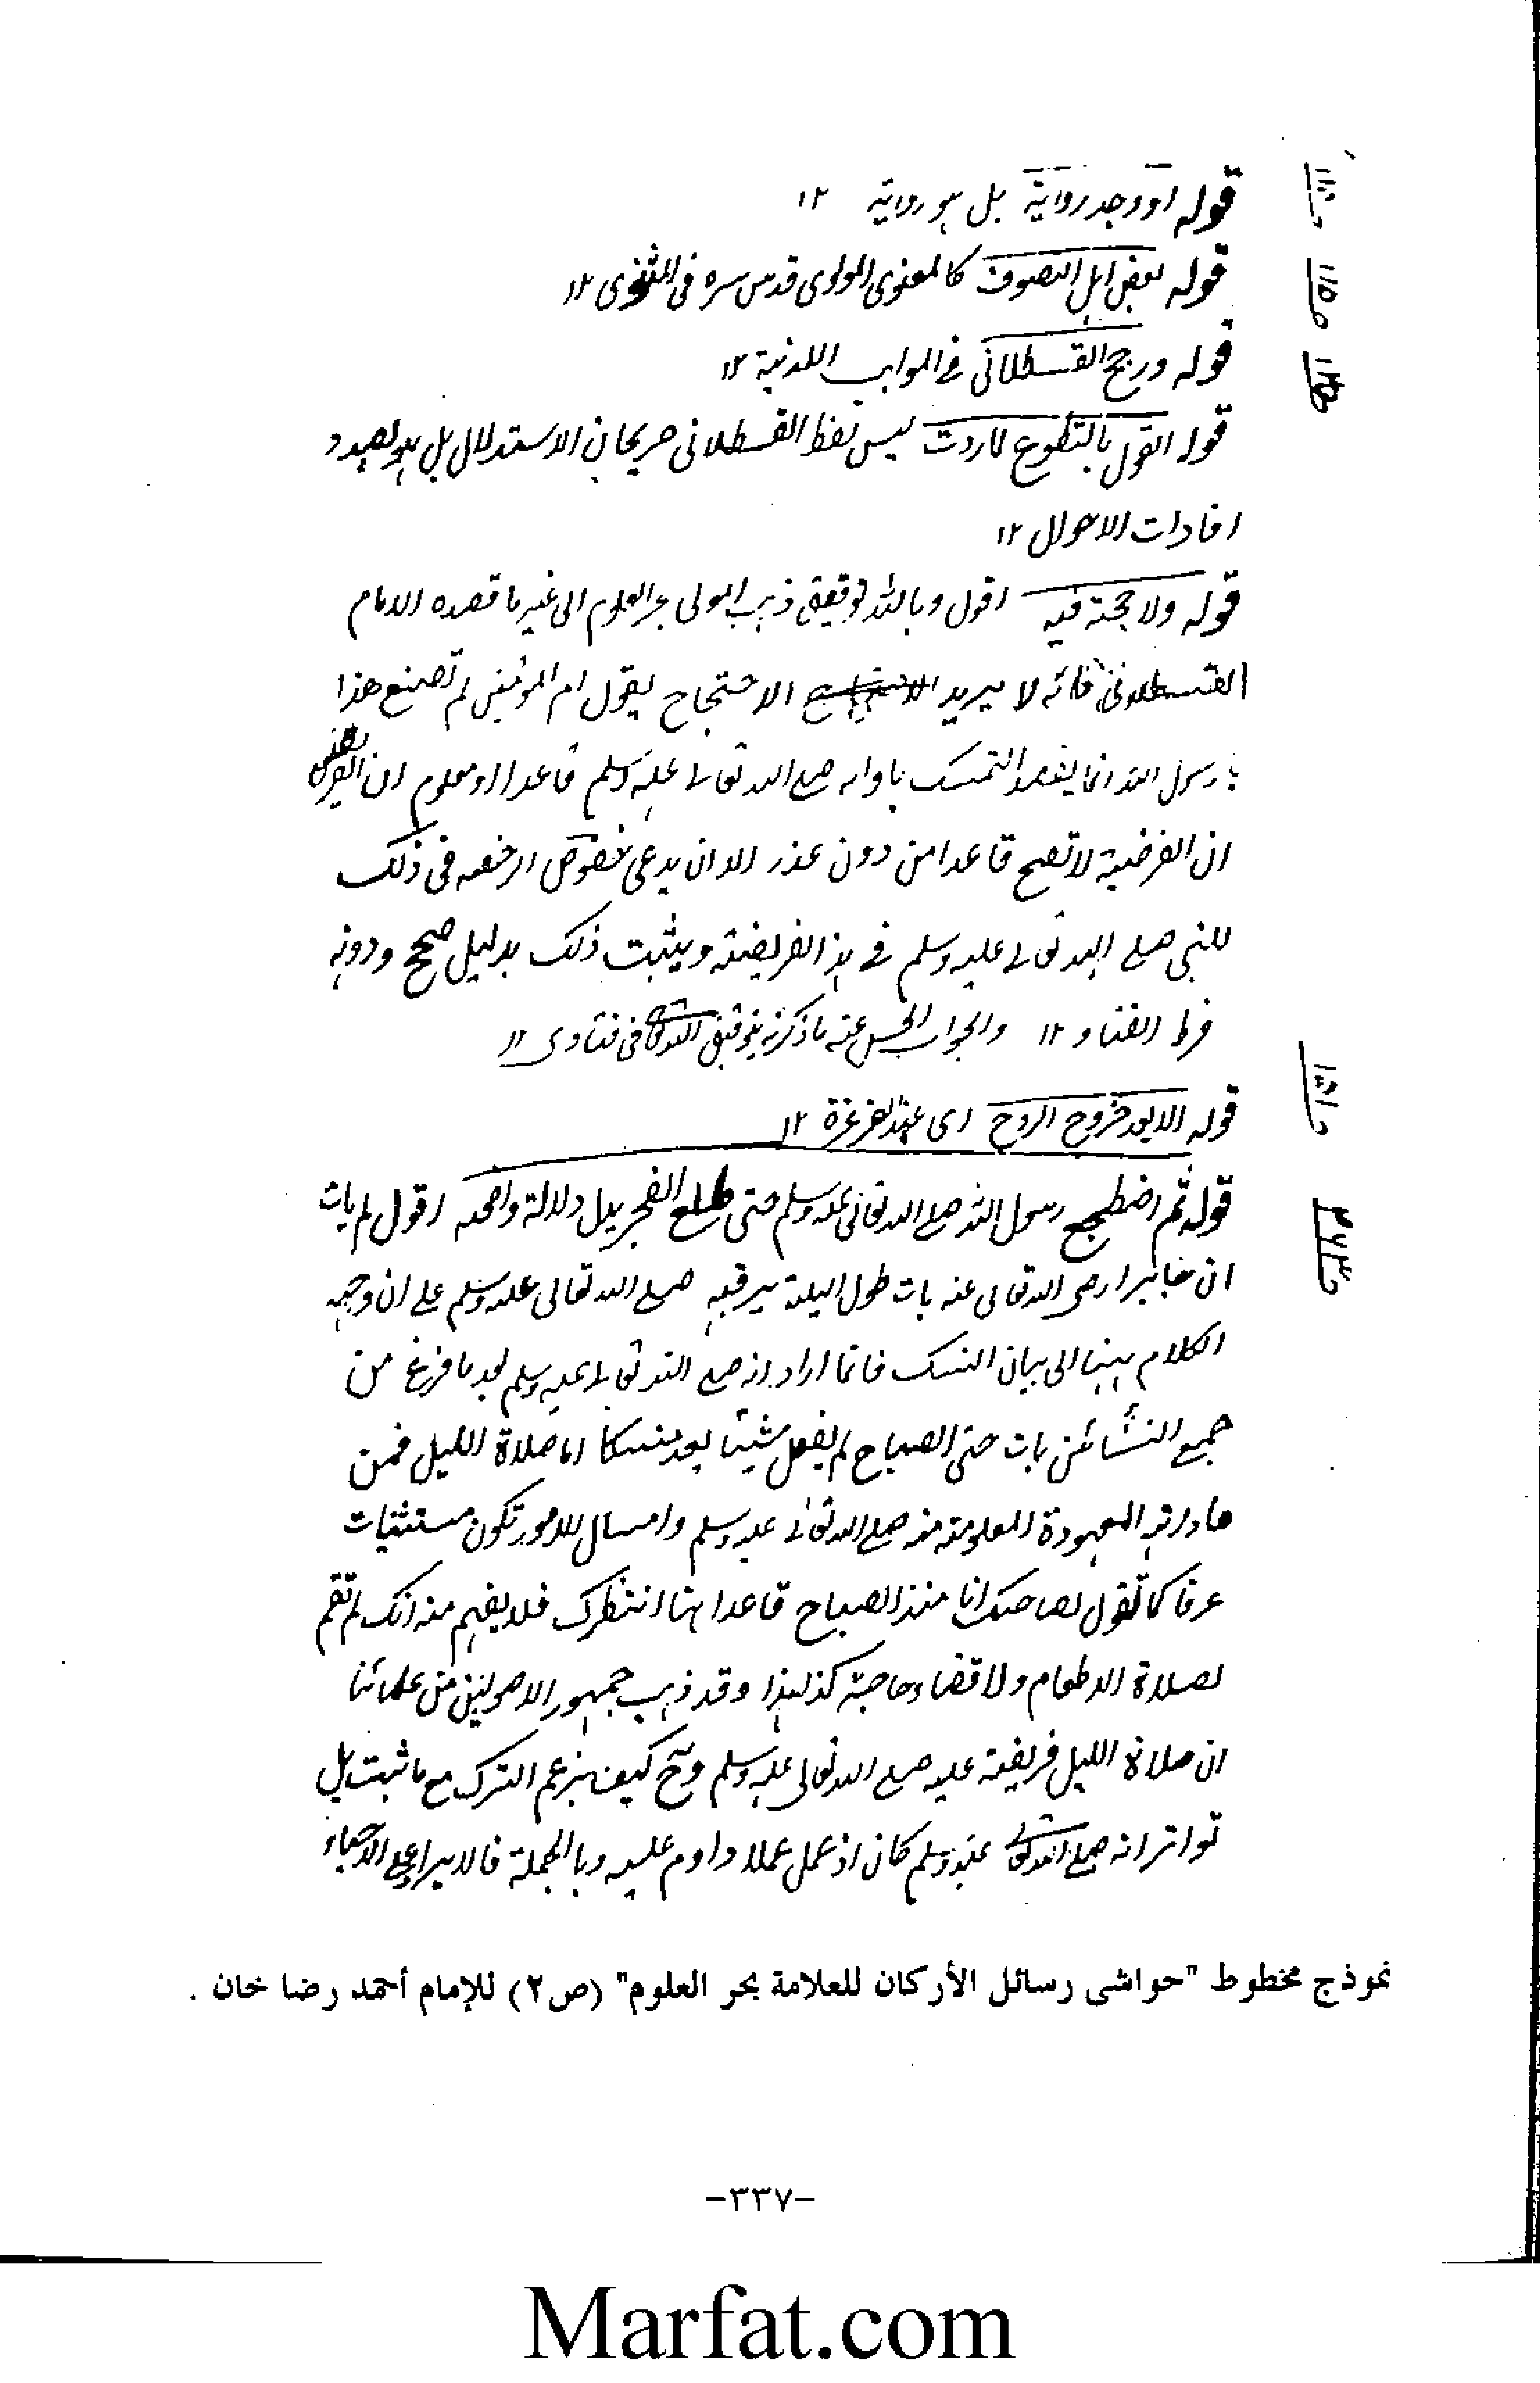 قوله او وجد رواية بل هو رواية ۱۲
ص۱۱۰
قوله بعض اهل التصوف كالمعنوى المولوى قدس سره فى المثنوى ۱۲
ص۱۱۵
قوله ورجح القسطلانى فى المواهب اللدنية ۱۲
قوله القول بالتطوع لما ردت ليس لفظ القسطلانى صريحا فى الاستدلال بل هو بصدد
افادات الاحوال ۱۲
قوله ولا حجة فيه اقول وبالله توفيقى ذهب المولى بحر العلوم الى غير ما قصده الامام
القسطلانى فانه لا يريد الاحتجاج بقول ام المومنين لم تصنع هذا
يا رسول الله انما يقصد التمسك باداء صلى الله تعالى عليه وسلم قاعدا اذ معلوم ان
ان الفرضية لا تصح قاعدا من دون عذر الا ان يدعى خصوص الرخصه فى ذلك
للنبى صلى الله تعالى عليه وسلم فى هذه الفريضة ويثبت ذلك بدليل صحيح ودونه
خرط القتاد ۱۲ والجواب الحسن عنه ما ذكرته بتوفيق الله تعالى فى فتاوى ۱۲
قوله الا بعد خروج الروح اى عند الغرغرة ۱۲
ص۱۵۱
قوله ثم اضطجع رسول الله صلى الله تعالى عليه وسلم حتى طلع الفجر يدل دلالة واضحه اقول لم يات
ان جابرا رضى الله تعالى عنه بات طول الليلة يرقبه صلى الله تعالى عليه وسلم على ان وجه
الكلام ههنا الى بيان النسك فانما اراد انه صلى الله تعالى عليه وسلم بعد ما فرغ من
جمع العشائين بات حتى الصباح لم يفعل شيئا يعد منسكا اما صلاة الليل فمن
عاداته المعهودة المعلومة منه صلى الله تعالى عليه وسلم وامثال الامور تكون مستثنيات
عرفا كما تقول لصاحبك انا منذ الصباح قاعدا ههنا انتظرك فلا يفهم منه انك لم تقم
لصلاة ولا طعام ولا قضاء حاجة كذا هذا وقد ذهب جمهور الاصوليين من علمائنا
ان صلاة الليل فريضة عليه صلى الله تعالى عليه وسلم وح كيف يزعم الترك مع ما ثبت بل
تواتر انه صلى الله تعالى عليه وسلم كان اذ عمل عملا داوم عليه وبالجملة فالايراد على الاحياء
نموذج مخطوط "حواشى رسائل الأركان للعلامة بحر العلوم" (ص٢) للإمام أحمد رضا خان .
-٣٣٧-
Marfat.com